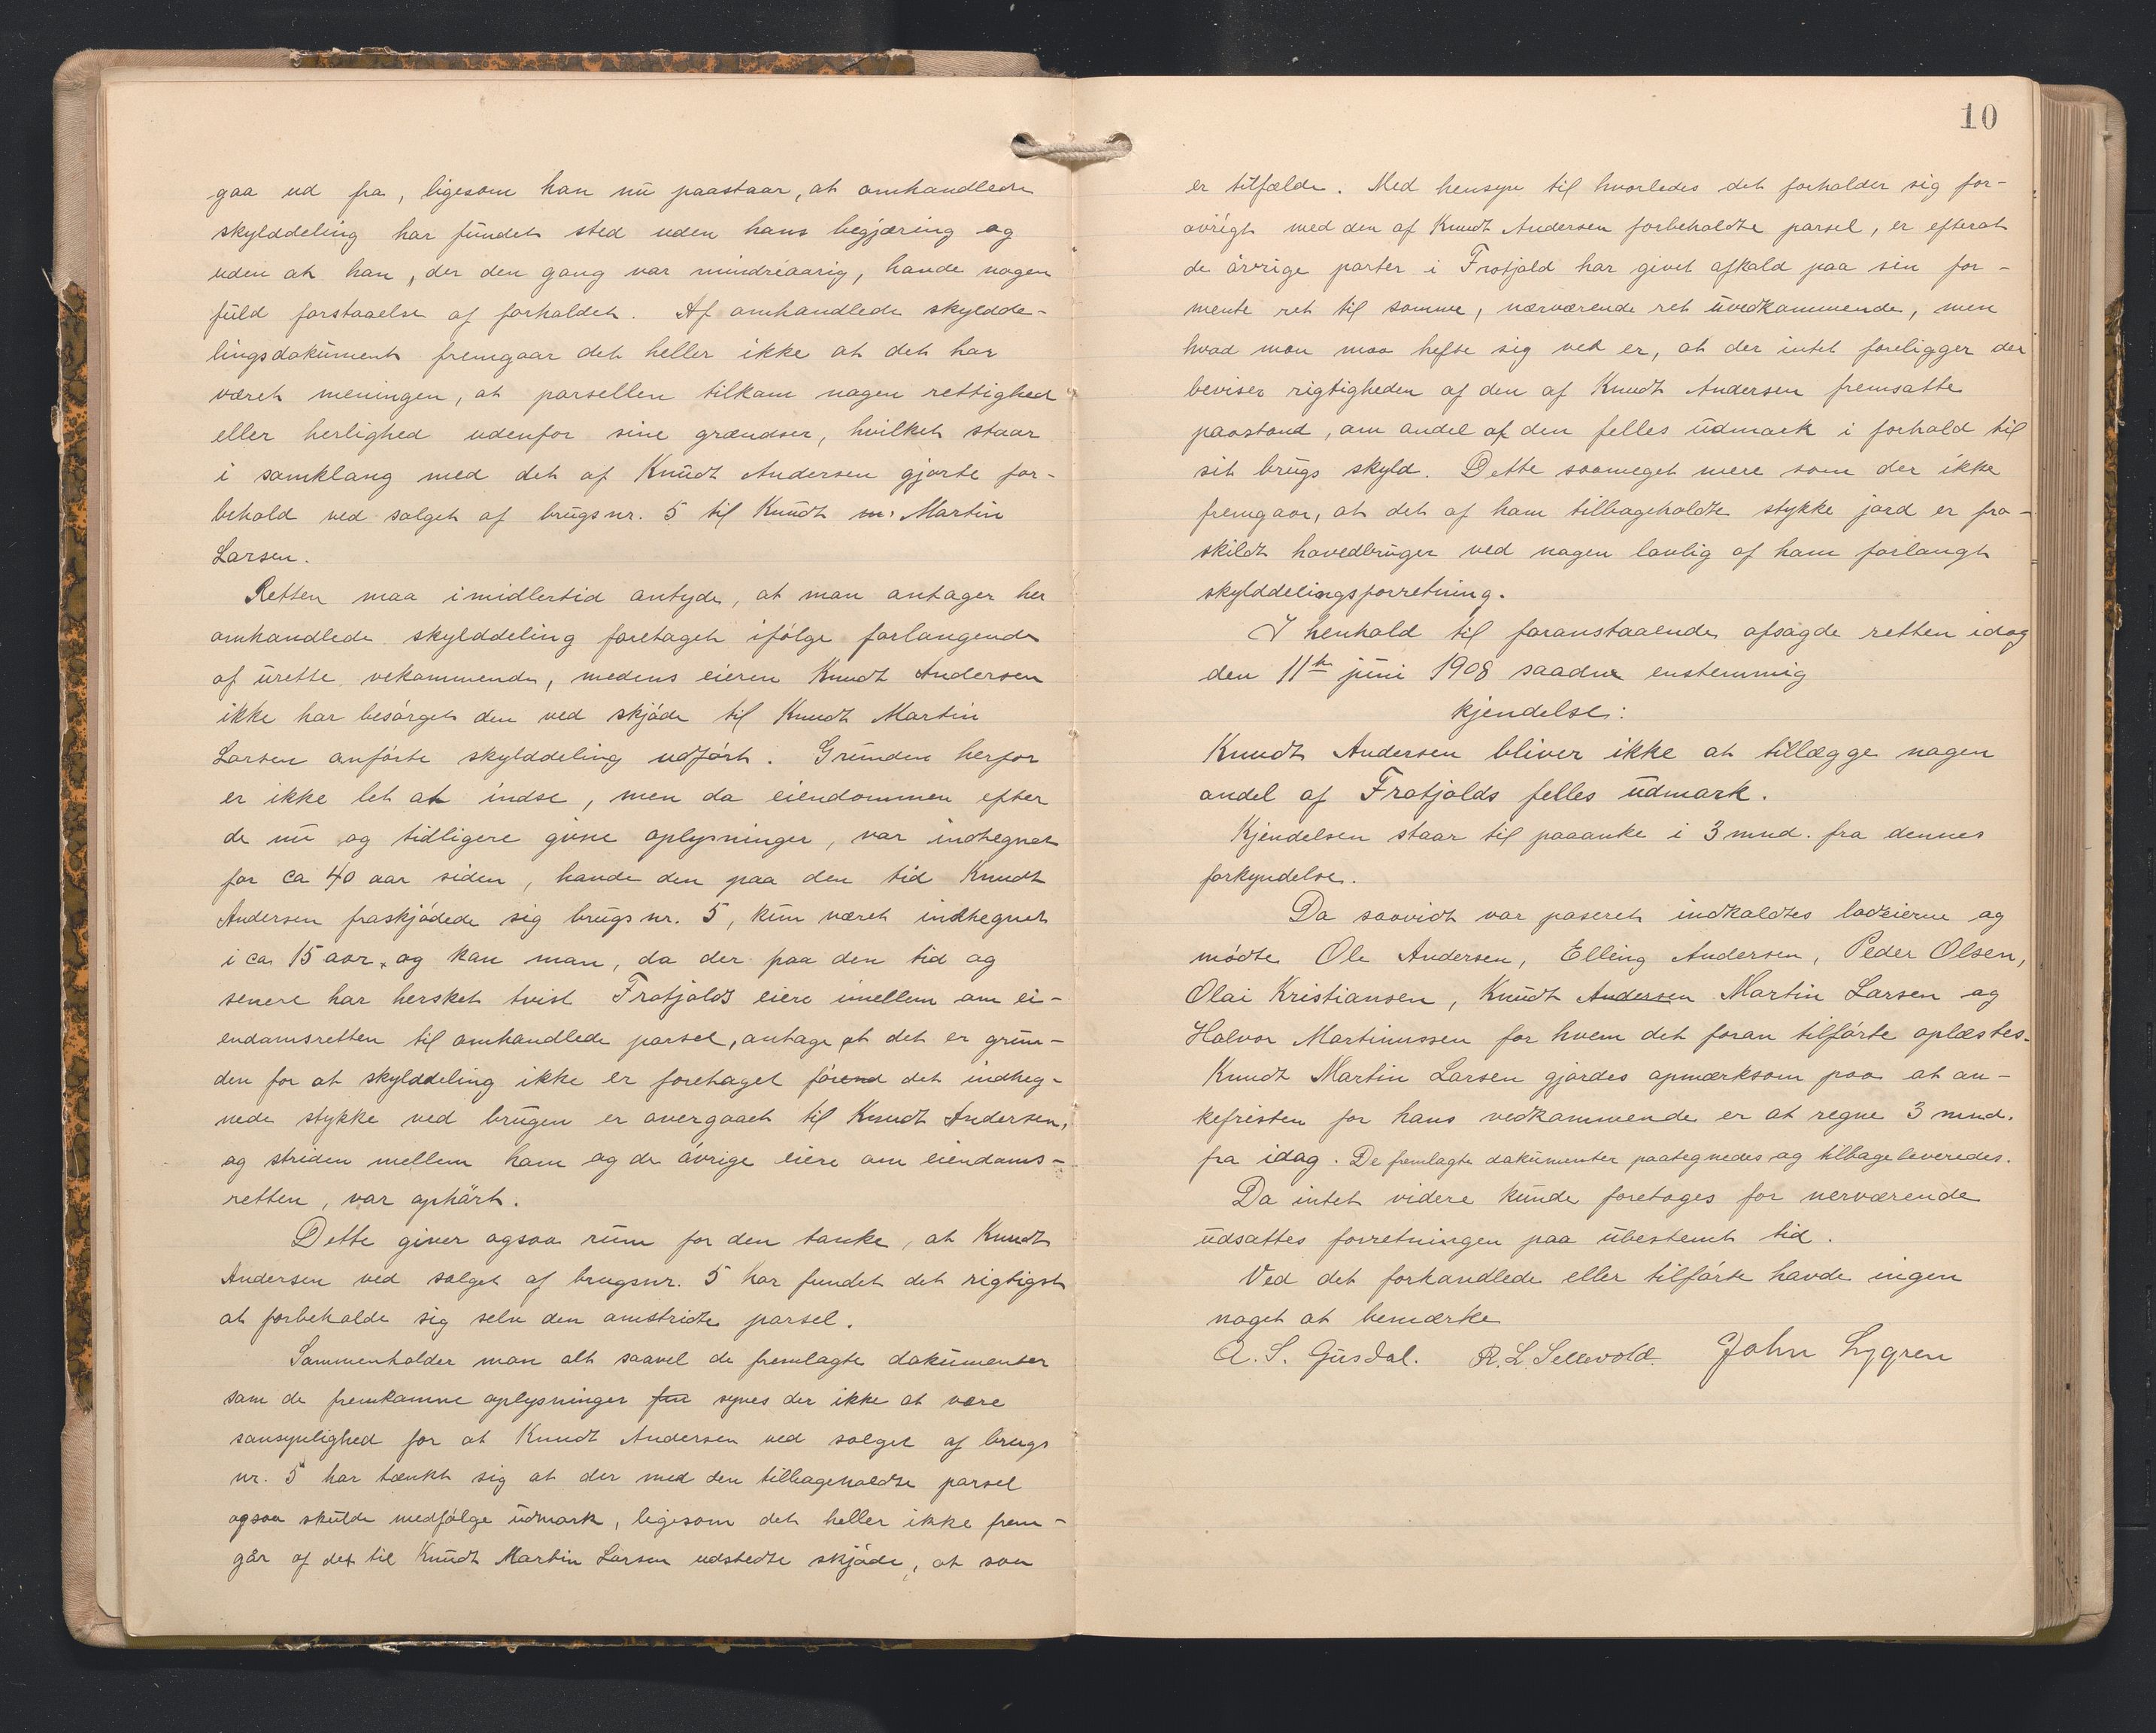 gaa ud fra, ligesom han nu paastaar, at omhandlede
skylddeling har fundet sted uden hans begjæring og
uden at han, der den gang var mindreaarig, havde nogen
fuld forstaaelse af forholdet. Af omhandlede skyldde-
lingsdokument fremgaar det heller ikke at det har
været meningen, at parsellen tilkom nogen rettighed
eller herlighed udenfor sine grændser, hvilket staar
i samklang med det af Knudt Andersen gjorte for-
behold ved salget af brugsnr. 5 til Knudt m. Martin
Larsen.
Retten maa imidlertid antyde, at man antager her
omhandlede skylddeling foretaget ifølge forlangende
af urette vekommende, medens eieren Knudt Andersen
ikke har besørget den ved skjøde til Knudt Martin
Larsen anførte skylddeling udført. Grunden herfor
er ikke let at indse, men da eiendommen efter
de nu og tidligere givne oplysninger, var indhegnet
for ca 40 aar siden, havde den paa den tid Knudt
Andersen fraskjødede sig brugsnr. 5, kun været indhegnet
i ca 15 aar, og kan man, da der paa den tid og
senere har hersket tvist Frotjolds eiere imellem om ei-
endomsretten til omhandlede parsel, antage at det er grun-
den for at skylddeling ikke er foretaget førend det indheg-
nede stykke ved brugen er overgaaet til Knudt Andersen,
og striden mellem ham og de øvrige eiere om eiendoms-
retten, var ophørt.
Dette giver ogsaa rum for den tanke, at Knudt
Andersen ved salget af brugsnr. 5 har fundet det rigtigst
at forbeholde sig selv den omstridte parsel.
Sammenholder man alt saavel de fremlagte dokumenter
som de fremkomne oplysninger fra synes der ikke at være
sansynlighed for at Knudt Andersen ved salget af brugs
nr. 5 har tænkt sig at der med den tilbageholdte parsel
ogsaa skulde medfølge udmark, ligesom det heller ikke frem-
går af det til Knudt Martin Larsen udstedte skjøde, at saa
10
er tilfælde. Med hensyn til hvorledes det forholder sig for-
øvrigt med den af Knudt Andersen forbeholdte parsel, er efterat
de øvrige parter i Frotjold har givet afkald paa sin for-
mente ret til samme, nærværende ret uvedkommende, men
hvad man maa hefte sig ved er, at der intet foreligger der
beviser rigtigheden af den af Knudt Andersen fremsatte
paastand, om andel af den felles udmark i forhold til
sit brugs skyld. Dette saameget mere som der ikke
fremgaar, at det af ham tilbageholdte stykke jord er fra-
skildt hovedbruget ved nogen lovlig af ham forlangt
skylddelingsforretning.
I henhold til foranstaaende afsagde retten idag
den 11te juni 1908 saadan enstemmig
kjendelse:
Knudt Andersen bliver ikke at tillægge nogen
andel af Frotjolds felles udmark.
Kjendelsen staar til paaanke i 3 mnd. fra dennes
forkyndelse.
Da saavidt var paseret indkaldtes lodeierne og
mødte Ole Andersen, Elling Andersen, Peder Olsen,
Olai Kristiansen, Knudt Andersen Martin Larsen og
Halvor Martinussen for hvem det foran tilførte oplæstes.
Knudt Martin Larsen gjordes opmærksom paa at an-
kefristen for hans vedkommende er at regne 3 mnd.
fra idag. De fremlagte dokumenter paategnedes og tilbageleveredes.
Da intet videre kunde foretages for nerværende
udsattes forretningen paa ubestemt tid.
Ved det forhandlede eller tilførte havde ingen
noget at bemærke
A. S. Gusdal. R. L. Sellevold. John Lygren